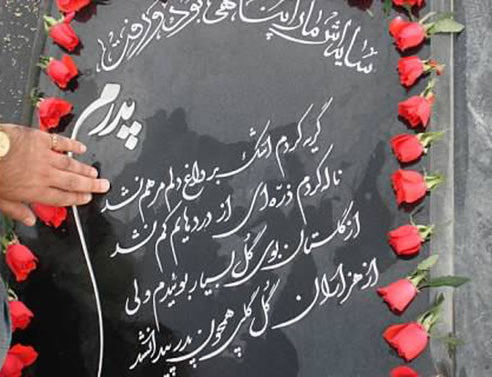 سایه‌اش ما را پناهی بود و رفت
پدرم
گریه کردم اشک بر داغ دلم مرهم نشد
ناله کردم ذره‌ای از دردهایم کم نشد
از گلستان بوی گل بسیار بوئیدم ولی
از هزاران گل گلی همچون پدر پیدا نشد